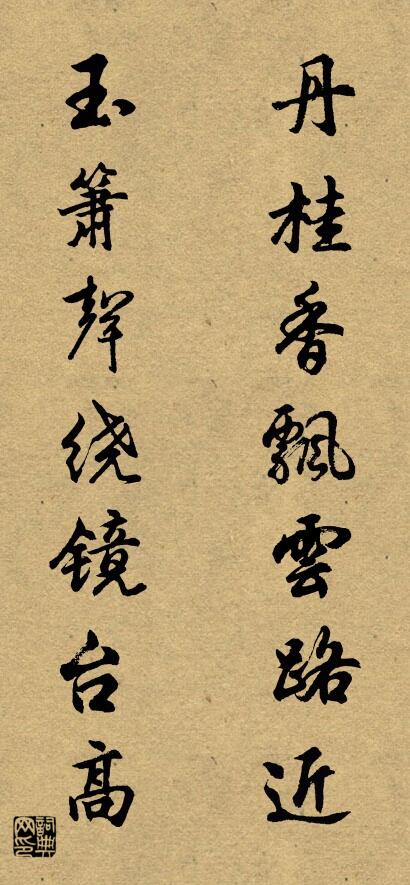 丹桂香飄雲路近
玉簫聲绕镜台高
詞典网印